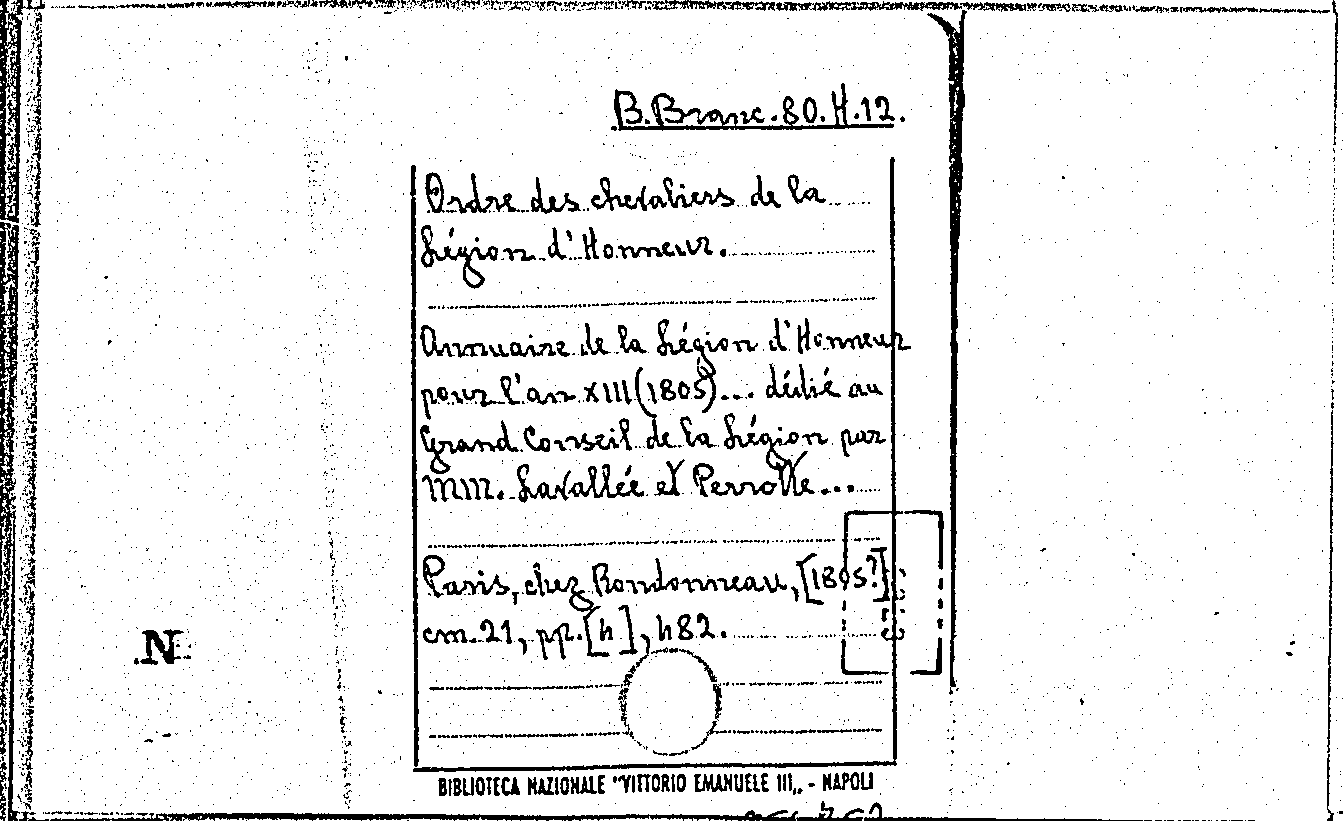 B.Branc.80.H.12.
Ordre des chevaliers de la
Légion d'Honneur.
Annuaire de la Légion d'Honneur
pour l'an XIII (1805)... dédié au
Grand Conseil de la Légion par
MM. Lavallée et Perrotte...
Paris, chez Rondonneau, [1805?]
cm. 21, pp. [4], 482.
N
BIBLIOTECA NAZIONALE "VITTORIO EMANUELE III„ - NAPOLI